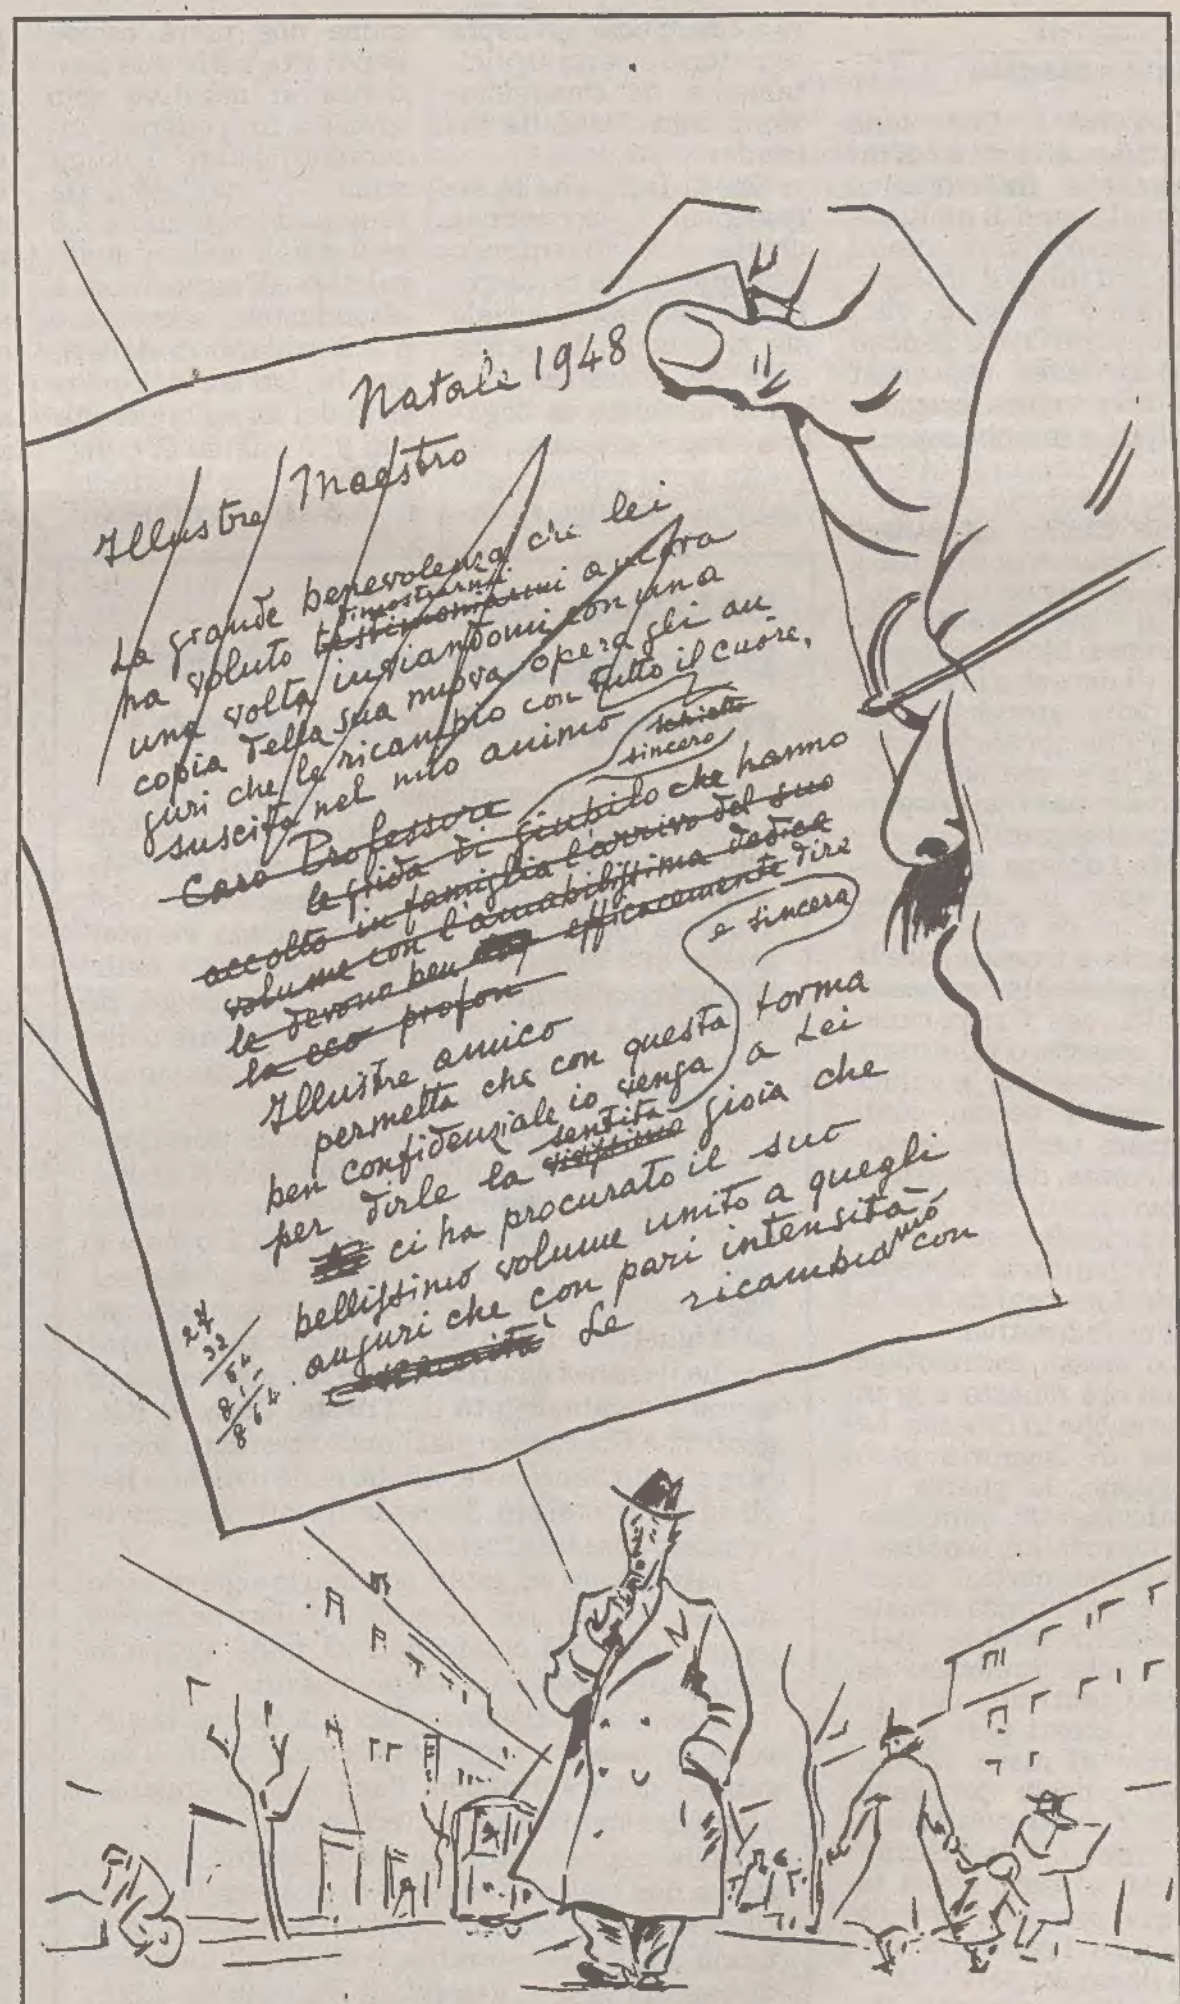 Natale 1948
Illustre Maestro
La grande benevolenza che lei
dimostrarmi
ha voluto testimoniarmi ancora
una volta inviandomi con una
copia della sua nuova opera gli au
guri che le ricambio con tutto il cuore,
suscita nel mio animo
schietto
sincero
Caro Professore
le grida di giubilo che hanno
accolto in famiglia l'arrivo del suo
volume con l'amabilissima dedica
le devono ben efficacemente dire
la eco profon
e sincera
Illustre amico
permetta che con questa forma
ben confidenziale io venga a Lei
sentita
per dirle la vivissima gioia che
ci ha procurato il suo
bellissimo volume unito a quegli
auguri che con pari intensità
Le ricambiamo con
27
32
54
81-
864